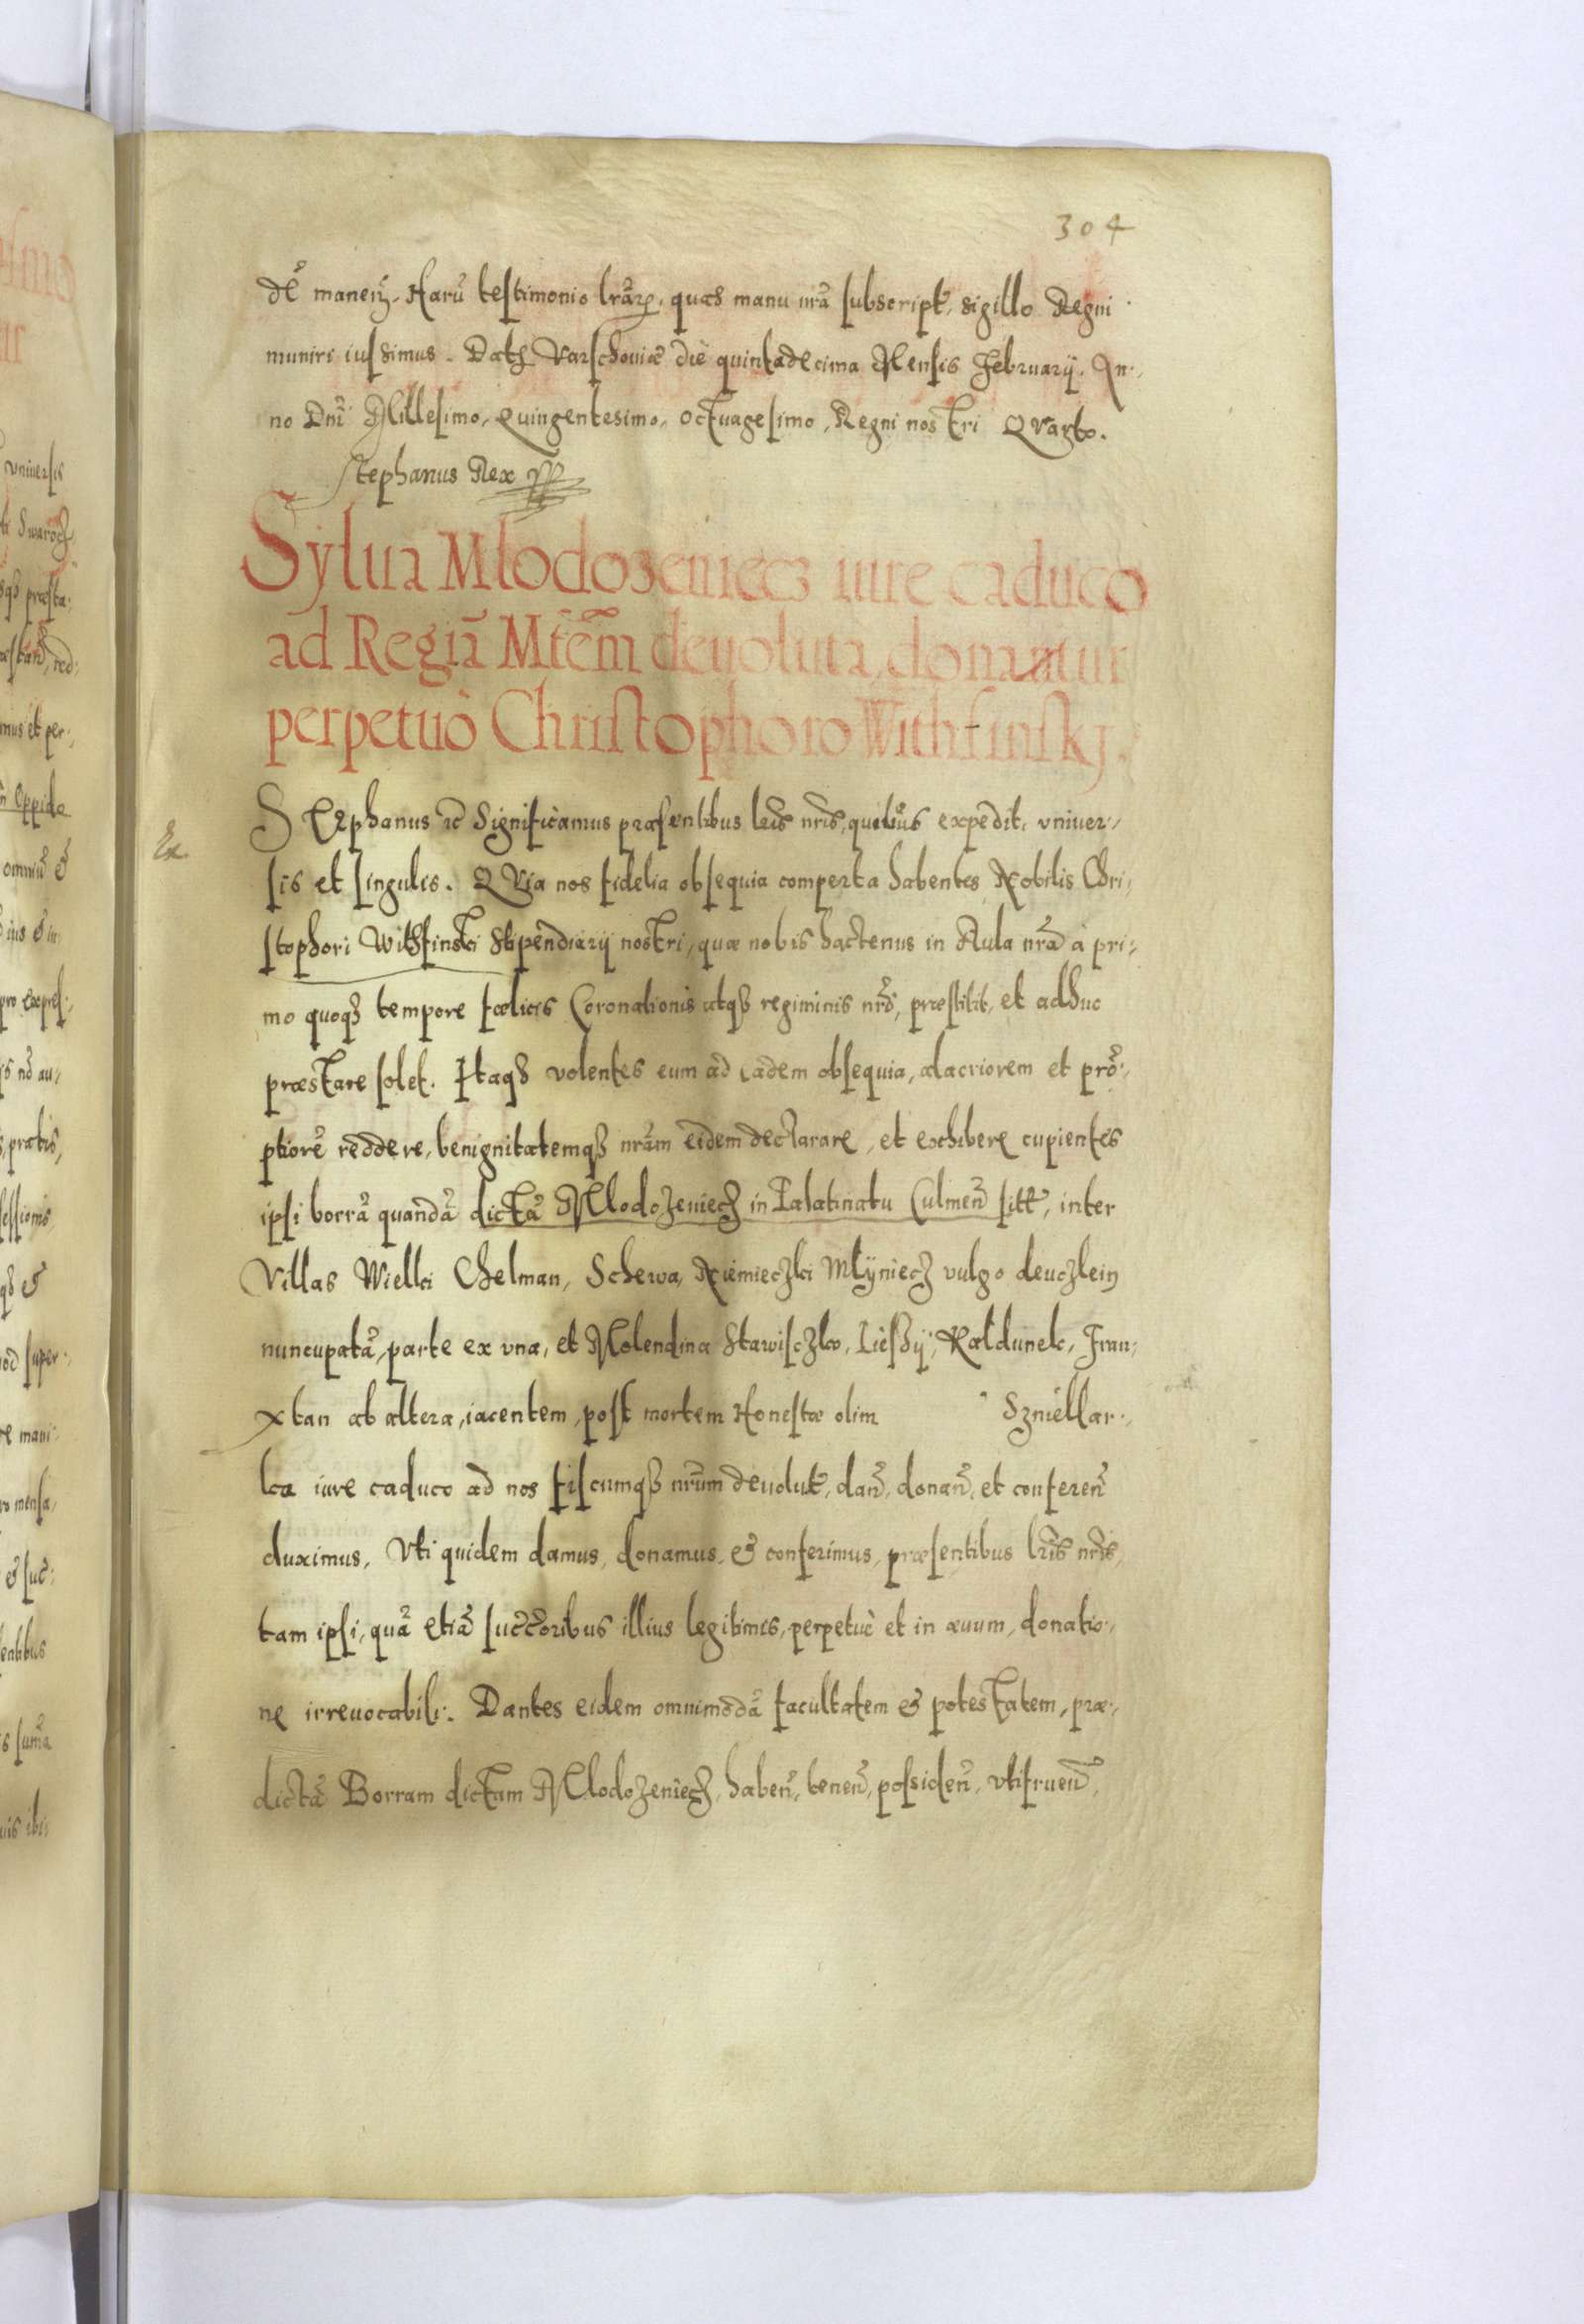 304
dẽ maneñ. Harũ testimonio lrãrꝫ. quas manu nrã subscript. sigillo Regni
muniri iussimus. Datꝫ Varschouiæ die quintadecima Mensis February. An-
no Dnĩ Millesimo, Quingentesimo, Octuagesimo, Regni nostri Qvarto.
Stephanus Rex
Sylua Mlodozeniecz iure caduco
ad Regiã Mtẽm deuoluta, donatur
perpetuò Christophoro Withfinskj.
STephanus etc Significamus præsentibus lrĩs nrĩs, quibus expedit, vniuer-
Ex
sis et singulis. QVia nos fidelia obsequia comperta habentes Nobilis Chri-
stophori Withfinski Stipendiarij nostri, quæ nobis hactenus in Aula nrã à pri-
mo quoqꝫ tempore fœlicis Coronationis atqꝫ regiminis nrĩ, præstitit, et adhuc
præstare solet. Itaqꝫ volentes eum ad eadem obsequia, alacriorem et prõ-
ptiorẽ reddere, benignitatemqꝫ nrãm eidem declarare, et exhibere cupientes
ipsi borrã quandã dictã Mlodozeniecz in Palatinatu Culmeñ sitt, inter
Villas Wielki Chelman, Schewa, Niemieczki Mlÿniecz vulgo deuczlein
nuncupatã, parte ex vna, et Molendina Stawisczko, Lieszÿ, Kaldunek, Fran-
xtan ab altera, iacentem, post mortem Honestæ olim Szniellar-
ka iure caduco ad nos fiscumqꝫ nrũm deuolut, dañ, donañ, et confereñ
duximus, Vti quidem damus, donamus, et conferimus, præsentibus lrĩs nrĩs,
tam ipsi, quã etiã succc̃oribus illius legitimis, perpetuè et in æuum, donatio-
ne irreuocabili. Dantes eidem omnimodã facultatem et potestatem, præ-
dictã Borram dictam Mlodozeniecz, habeñ, teneñ, possideñ, vtifrueñ,